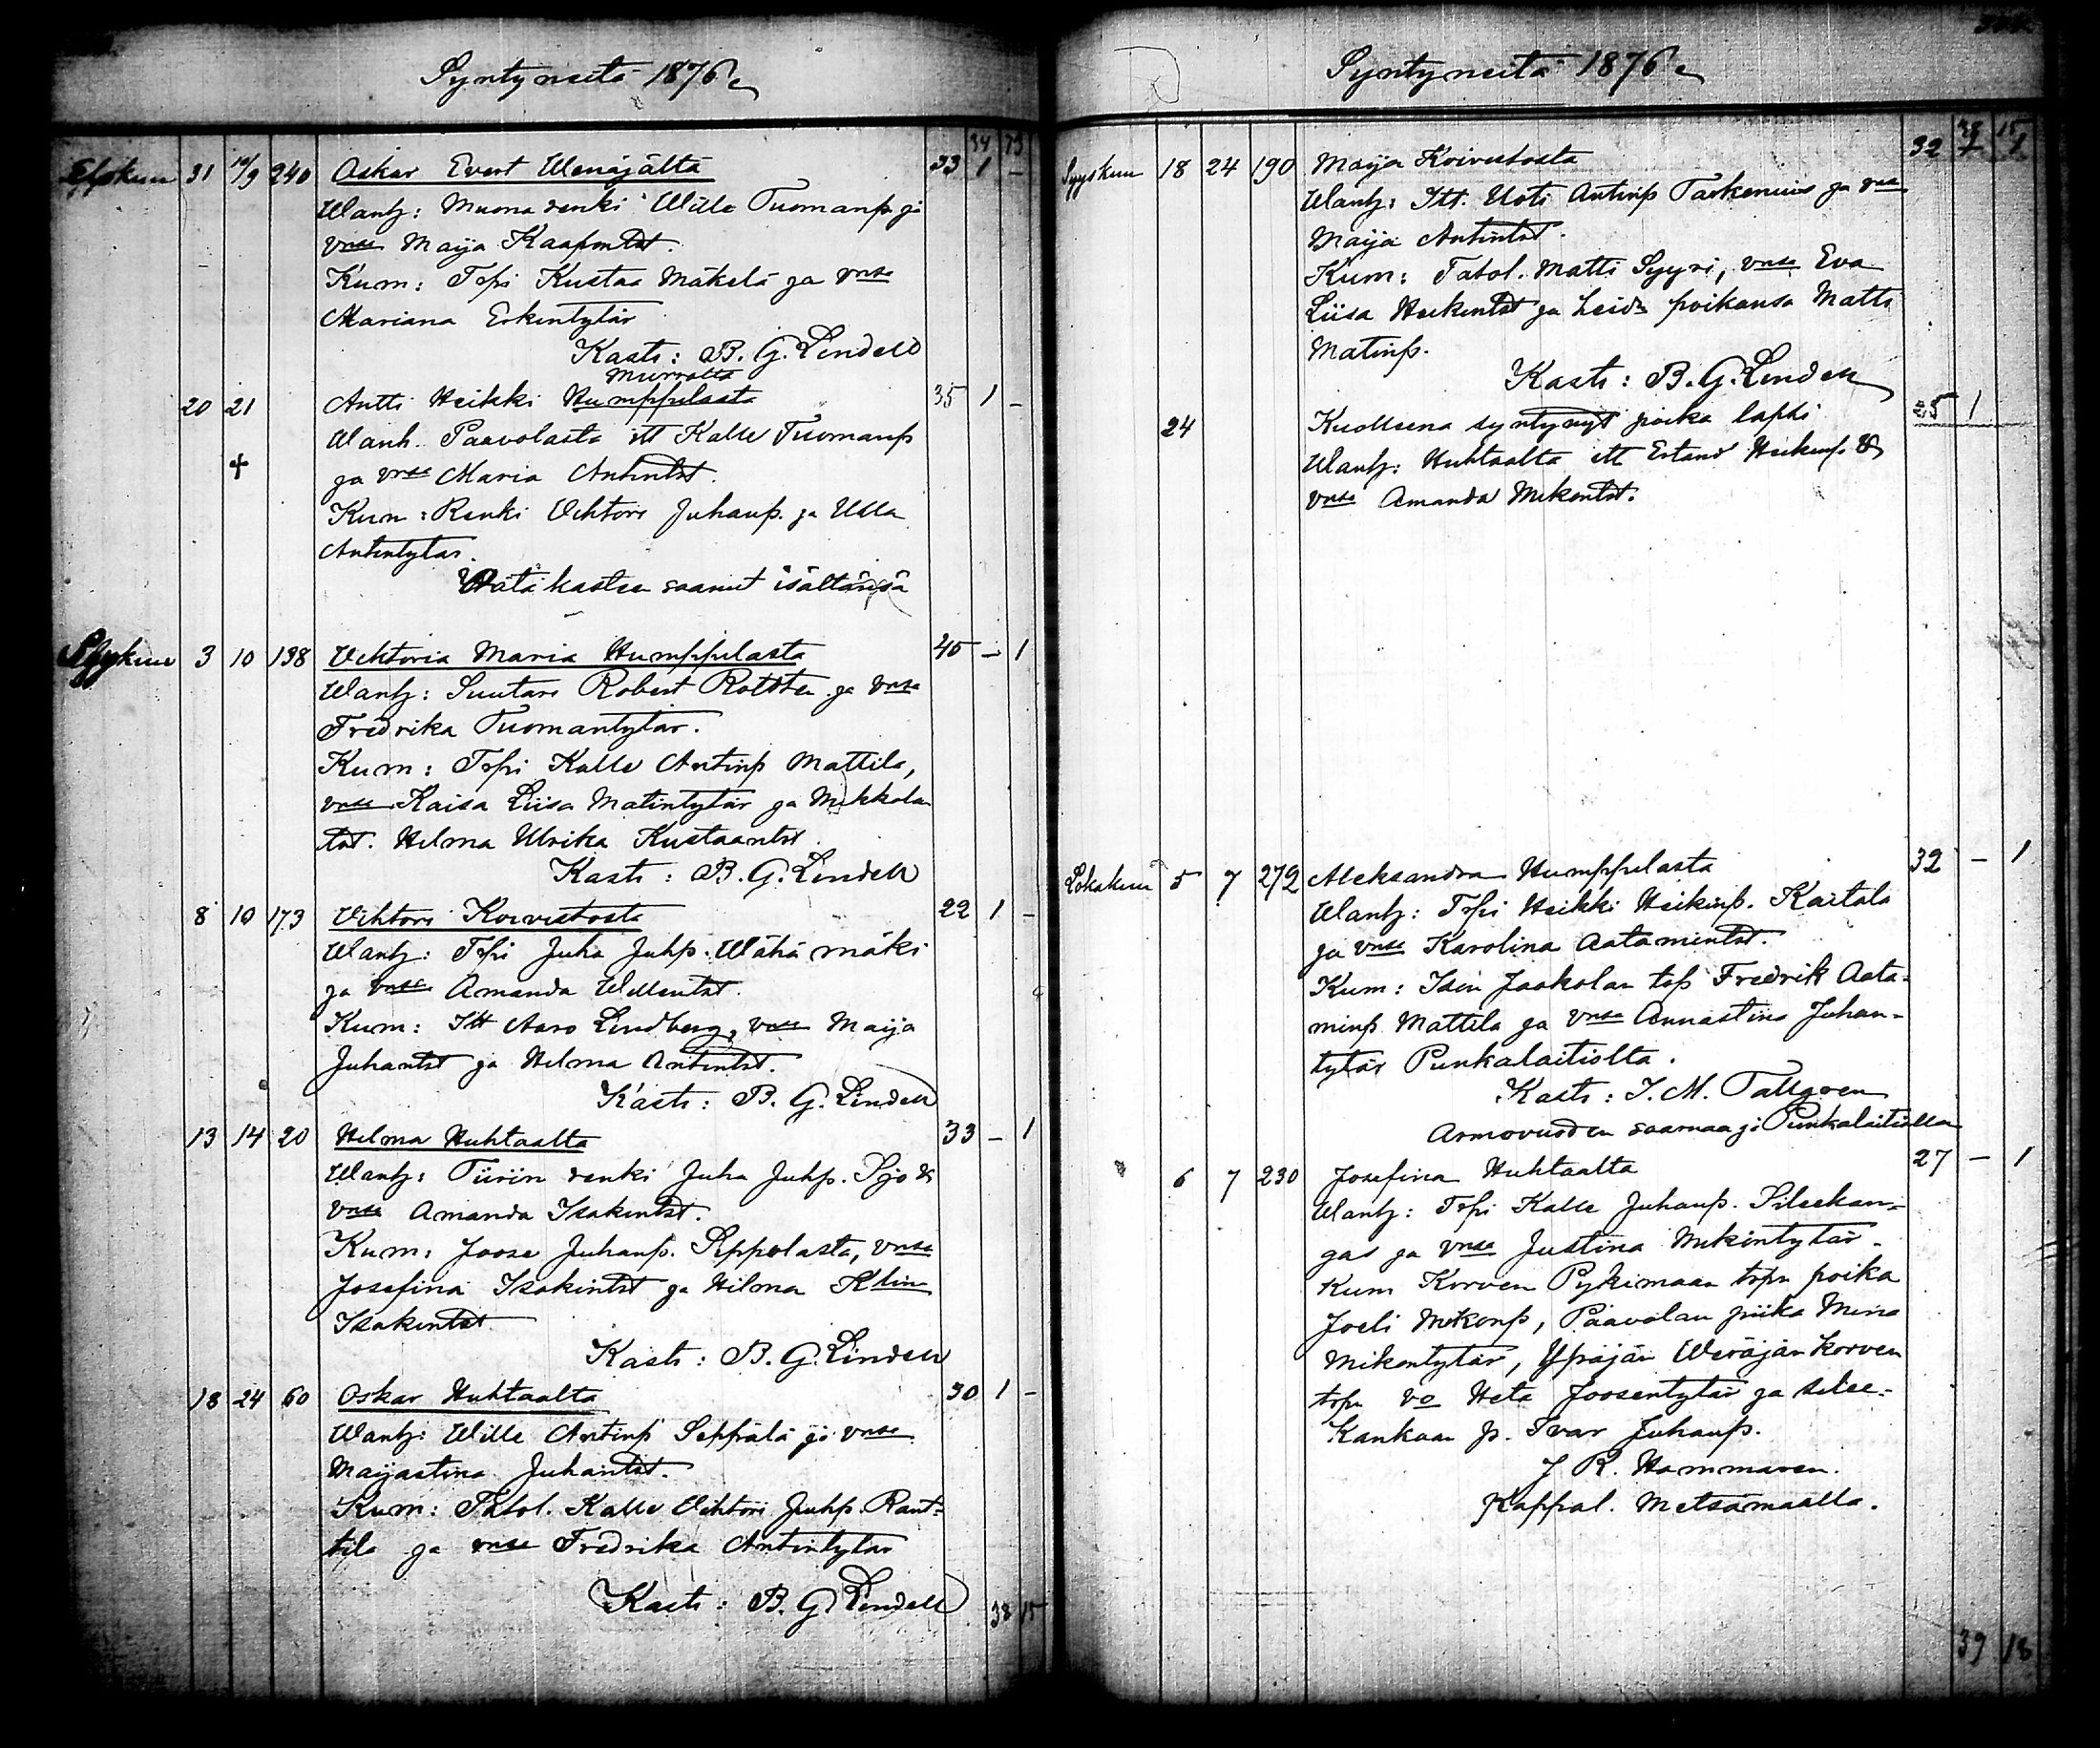 Syntyneitä 1876
34 13
Elokuu 31 10/9 240 Oskar Evert Wenäjältä 33 1 –
Wanh: Muona renki Wille Tuomanp ja
vnsa Maija Kaapontst.
Kum: Topi Kustaa Mäkelä ja vnsa
Mariana Erkintytär
Kasti: B. G. Lindell
Murrolta
20 21 Antti Heikki Humppilasta 35 1 –
Wanh. Paavolasta itt Kalle Tuomanp
+ ja vnsa Maria Antintst.
Kum: Renki Vihtori Juhanp. ja Ulla
Antintytär.
Hätä kasteen saanut isältänsä
Syyskuu 3 10 198 Vihtoria Maria Humppilasta 45 – 1
Wanh: Suutari Robert Rotsten ja vnsa
Fredrika Tuomantytär.
Kum: Topi Kalle Antinp Mattila,
vnsa Kaisa Liisa Matintytär ja Mikkolan
tst. Hilma Ulrika Kustaantst
Kasti: B. G. Lindell
8 10 173 Vihtori Koivistosta 22 1 –
Wanh: Topi Juha Juhp. Wähä mäki
ja vnsa Amanda Willentst.
Kum: Itt Aaro Lindberg, vnsa Maija
Juhantst ja Hilma Antintst.
Kasti: B. G. Lindell
13 14 20 Hilma Huhtaalta 33 – 1
Wanh: Tiirin renki Juha Juhp. Sjö &
vnsa Amanda Isakintst.
Kum: Joose Juhanp. Seppolasta, vnsa
Josefina Isakintst ja Hilma Klin
Isakintst
Kasti: B. G. Lindell
18 24 60 Oskar Huhtaalta 30 1 –
Wanh: Wille Antinp Seppälä ja vnsa
Maijastina Juhantst.
Kum: Tatol. Kalle Vihtori Juhp. Rant-
tila ja vnsa Fredrika Antintytär
Kasti: B. G. Lindell
38 15
Syntyneitä 1876
38 15
Syyskuu 18 24 190 Maija Koivistosta 32 – 1
Wanh: Itt. Uoti Antinp Taskenius ja vnsa
Maija Antintst.
Kum: Tatol. Matti Syyri, vnsa Eva
Liisa Heikintst ja heidn poikansa Matti
Matinp.
Kasti: B. G. Lindell
24 Kuolleena syntynyt poika lapsi 25 1
Wanh: Huhtaalta itt Erland Heikinp. &
vnsa Amanda Mikontst.
Lokakuu 5 7 272 Aleksandra Humppilasta 32 – 1
Wanh: Topi Heikki Heikinp. Kaitala
ja vnsa Karolina Aatamintst.
Kum: Isin Jaakolan top Fredrik Aata-
minp. Mattila ja vnsa Annastina Juhan-
tytär Punkalaitiolta.
Kasti: I. M. Tallgren
Armovuoden saarnaaja Punkalaitiolla
6 7 230 Josefina Huhtaalta 27 – 1
Wanh: Topi Kalle Juhanp. Sileekan-
gas ja vnsa Justina Mikintytär.
Kum Korven Pykimaan topn poika
Joeli Mikonp, Paavolan piika Mina
Mikontytär, Ypäjän Weräjänkorven
topn vo Heta Joosentytär ja Silee-
Kankaan p. Ivar Juhanp.
J R. Hammaren.
Kappal. Metsämaalla.
39 18